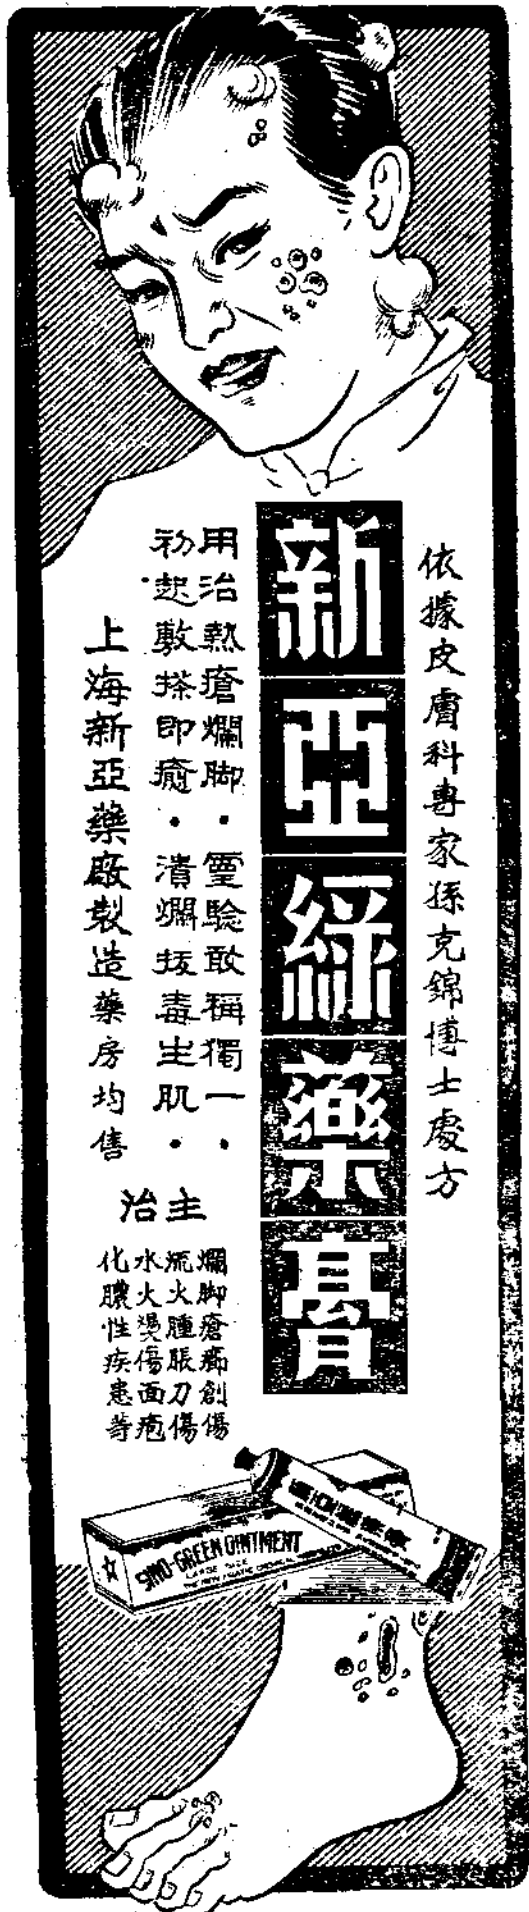 依據皮膚科專家孫克錦博士處方
新亞綠藥膏
用治熱瘡爛脚・靈驗敢稱獨一・
初起敷搽即癒・潰爛拔毒生肌・
上海新亞藥廠製造藥房均售
主治
爛脚瘡癤創傷
流火腫脹刀傷
水火燙傷面疱
化膿性疾患等
SINO-GREEN OINTMENT
LARGE SIZE